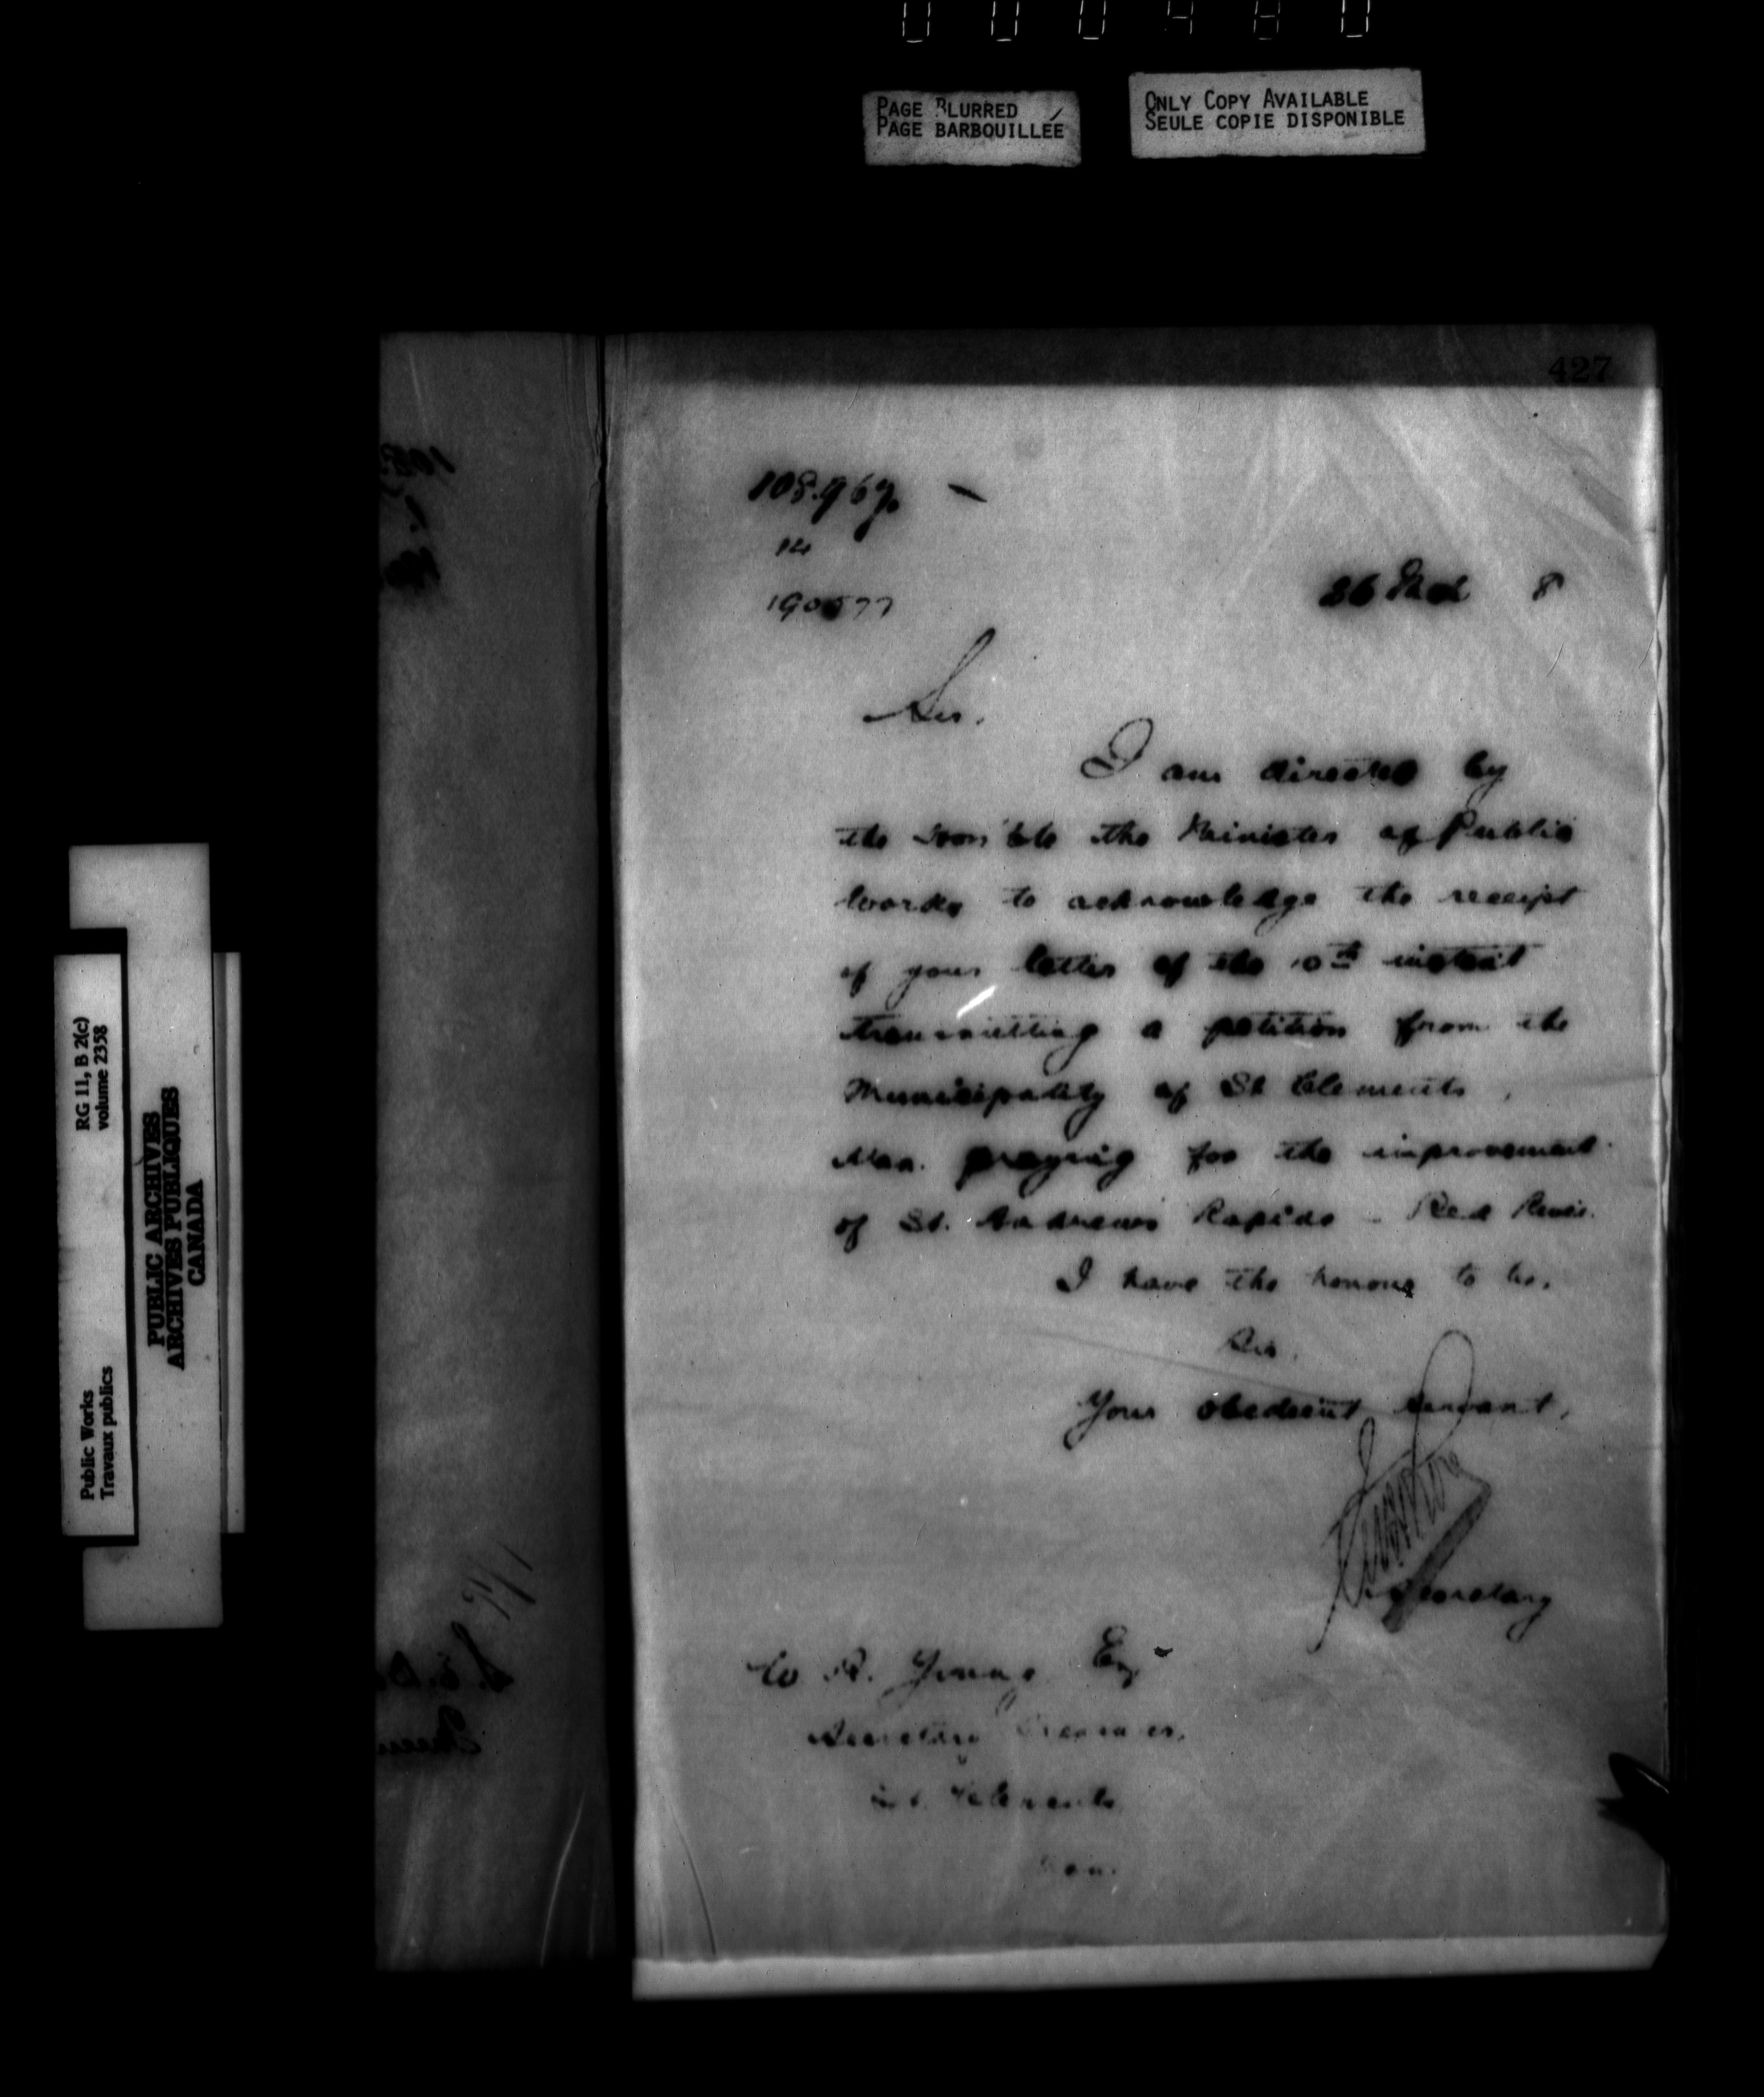 PAGE BLURRED
PAGE BARBOUILLÉE
ONLY COPY AVAILABLE
SEULE COPIE DISPONIBLE
427
108.967.
14
190577
26 8
Sir.
I am directed by
the Hon'ble the Minister of Public
Works to acknowledge the receipt
of your letter of the 10th instant
transmitting a petition from the
Municipality of St Clements,
Man. praying for the improvement
of St. Andrews Rapids - Red River.
I have the honour to be.
Sir.
Your obedient servant,
Secretary
W R. Young Esq
Secretary Treasurer,
St. Clements
Man.
RG 11, B 2(c)
volume 2358
Public Works
Travaux publics
PUBLIC ARCHIVES
ARCHIVES PUBLIQUES
CANADA